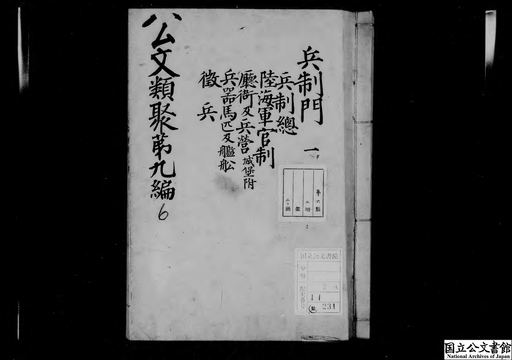 兵制門 一
兵制總
陸海軍官制
廳衙及兵營 城堡附
兵器馬匹及艦舩
徵兵
公文類聚第九編
6
国立公文書館
11
231
国立公文書館
National Archives of Japan